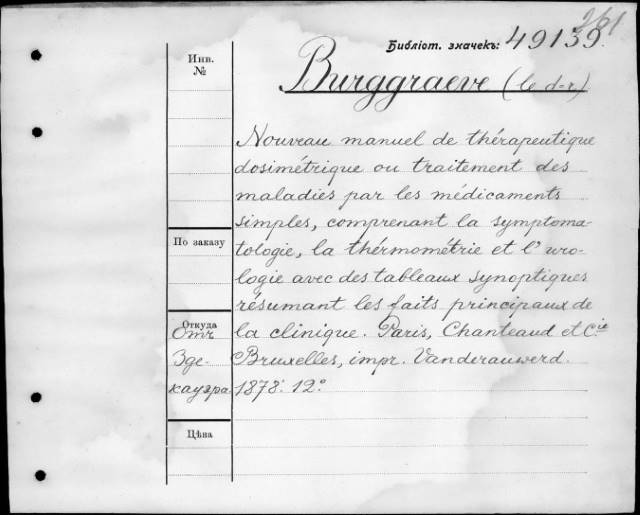 261
Библіот. значекъ: 49139.
Инв.
№
Burggraeve (le d-r)
Nouveau manuel de thérapeutique
dosimétrique ou traitement des
maladies par les médicaments
simples, comprenant la symptoma-
tologie, la thérmométrie et l'uro-
logie avec des tableaux synoptiques
résumant les faits principaux de
la clinique. Paris, Chanteaud et Cie
Bruxelles, impr. Vanderauwerd.
1878. 12°
По заказу
Откуда
Отъ
Зде-
кауэра
Цѣна